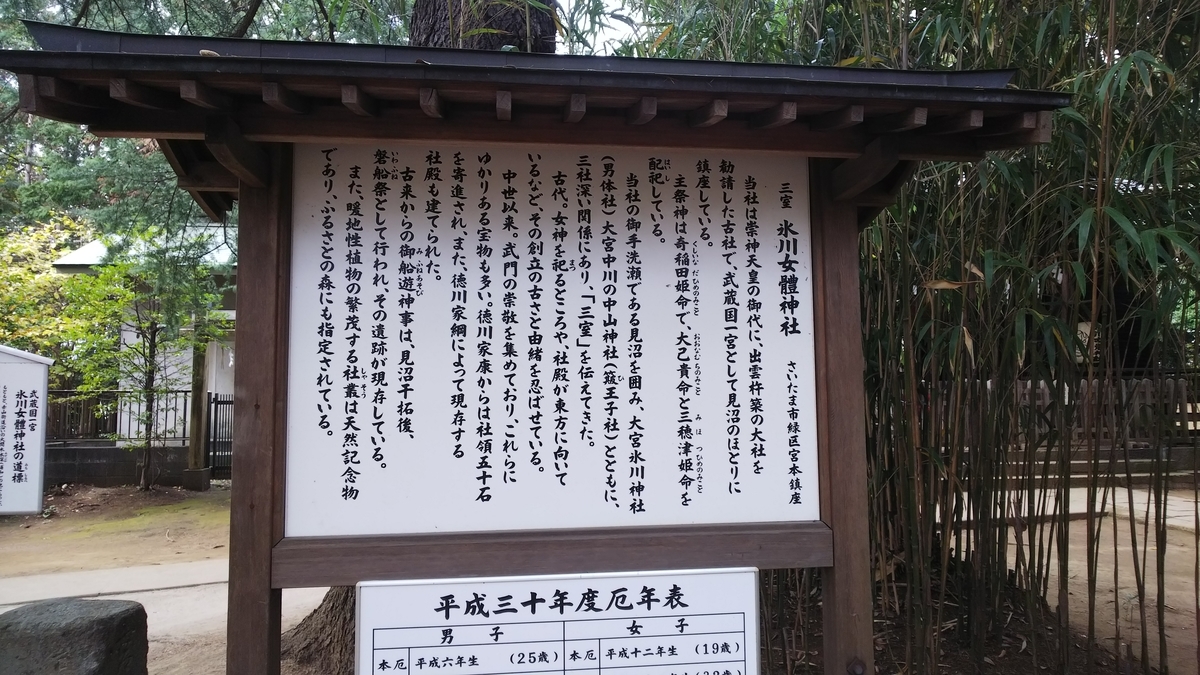 三室 氷川女體神社 さいたま市緑区宮本鎮座
当社は崇神天皇の御代に、出雲杵築の大社を
勧請した古社で、武蔵国一宮として見沼のほとりに
鎮座している。
主祭神は奇稲田姫命で、大己貴命と三穂津姫命を
くしいなだひめのみこと おおなむちのみこと みほつひめのみこと
配祀している。
はいし
当社の御手洗瀬である見沼を囲み、大宮氷川神社
(男体社)大宮中川の中山神社(簸王子社)とともに、
ひ
三社深い関係にあり、「三室」を伝えてきた。
古代。女神を祀るところや、社殿が東方に向いて
まつ
いるなど、その創立の古さと由緒を忍ばせている。
中世以来。武門の崇敬を集めており、これらに
ゆかりある宝物も多い。徳川家康からは社領五十石
を寄進され、また、徳川家綱によって現存する
社殿も建てられた。
古来からの御船遊神事は、見沼干拓後、
みふねあそび
磐船祭として行われ、その遺跡が現存している。
いわふね
また、暖地性植物の繁茂する社叢は天然記念物
しゃそう
であり、ふるさとの森にも指定されている。
平成三十年度厄年表
男子 女子
本厄 平成六年生 (25歳) 本厄 平成十二年生 (19歳)
武蔵国一宮
氷川女體神社の道標